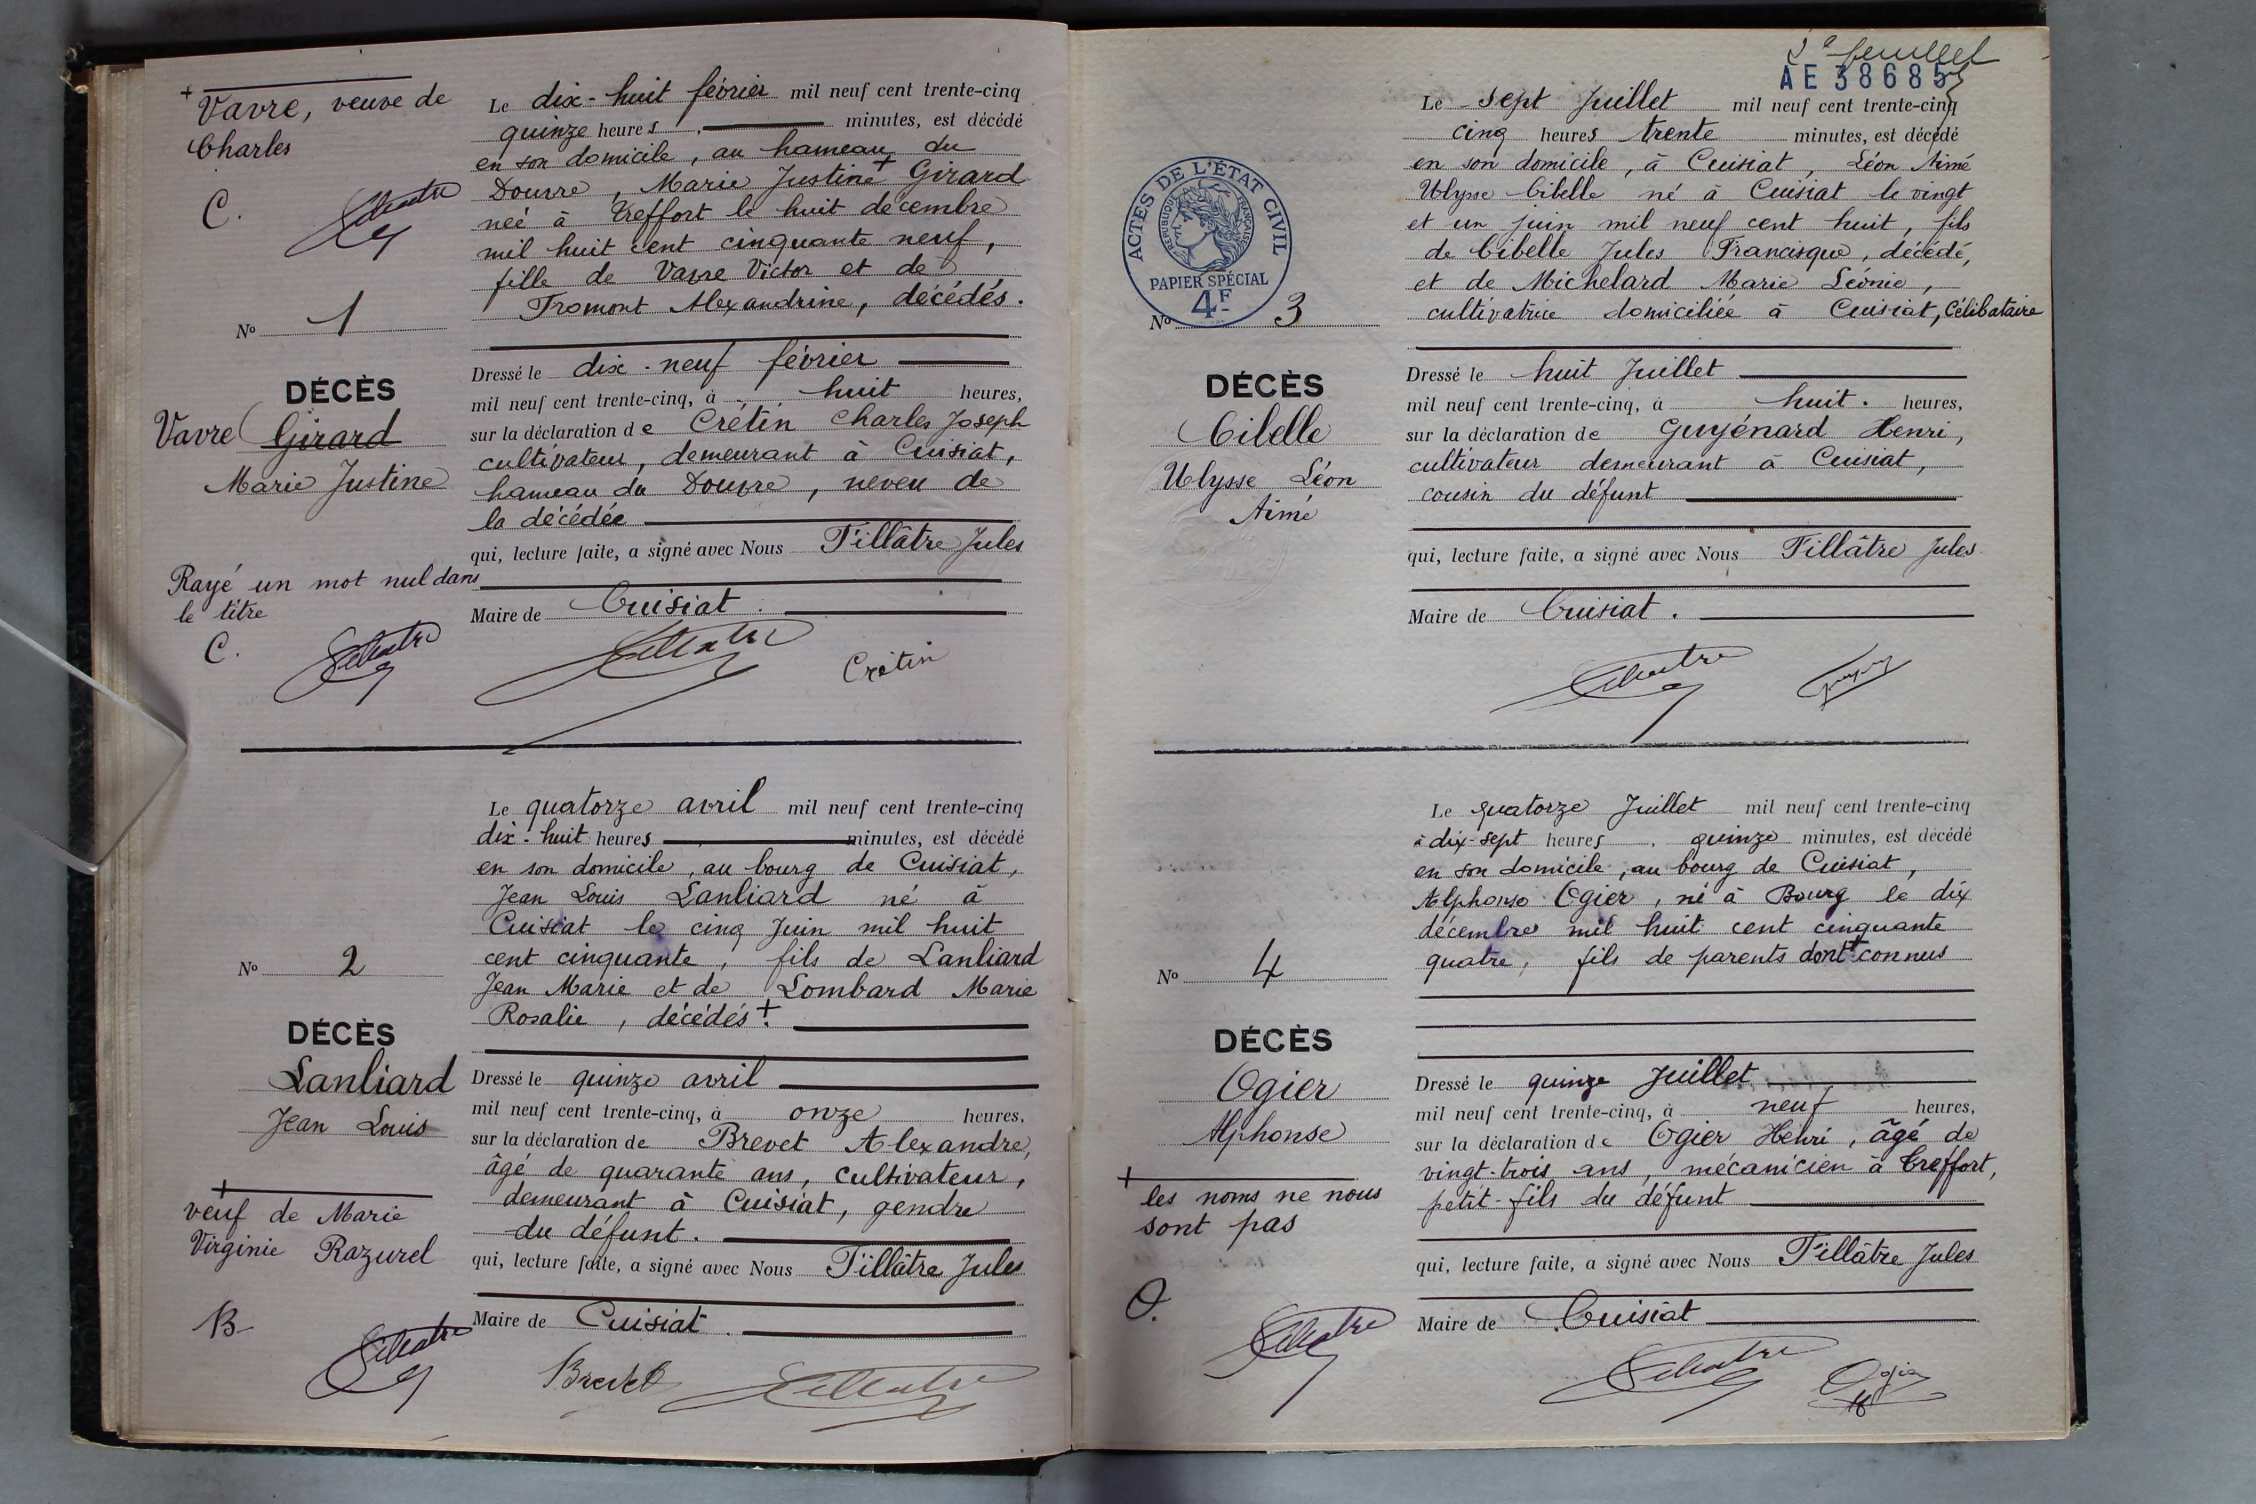 +
Vavre, veuve de
Charles
C.
Tillatre
N° 1
DÉCÈS
Vavre Girard
Marie Justine
Rayé un mot nul dans
le titre
C.
Tillatre
Le dix-huit février mil neuf cent trente-cinq
quinze heures minutes, est décédé
en son domicile, au hameau du
Douvre, Marie Justine + Girard
née à Treffort le huit décembre
mil huit cent cinquante neuf,
fille de Vavre Victor et de
Fromont Alexandrine, décédés.
Dressé le dix-neuf février
mil neuf cent trente-cinq, à huit heures,
sur la déclaration de Crétin Charles Joseph
cultivateur, demeurant à Cuisiat,
hameau du Douvre, neveu de
la décédée
qui, lecture faite, a signé avec Nous Tillâtre Jules
Maire de Cuisiat.
Tillatre Crétin
N° 2
DÉCÈS
Lanliard
Jean Louis
+
veuf de Marie
Virginie Razurel
B
Tillatre
Le quatorze avril mil neuf cent trente-cinq
dix-huit heures minutes, est décédé
en son domicile, au bourg de Cuisiat,
Jean Louis Lanliard né à
Cuisiat le cinq Juin mil huit
cent cinquante, fils de Lanliard
Jean Marie et de Lombard Marie
Rosalie, décédés +.
Dressé le quinze avril
mil neuf cent trente-cinq, à onze heures,
sur la déclaration de Brevet Alexandre,
âgé de quarante ans, cultivateur,
demeurant à Cuisiat, gendre
du défunt.
qui, lecture faite, a signé avec Nous Tillâtre Jules
Maire de Cuisiat.
Brevet Tillatre
2e feuillet
AE 38685
ACTES DE L'ÉTAT CIVIL
RÉPUBLIQUE FRANÇAISE
PAPIER SPÉCIAL
4F
N° 3
DÉCÈS
Cibelle
Ulysse Léon
Aimé
Le sept Juillet mil neuf cent trente-cinq
cinq heures trente minutes, est décédé
en son domicile, à Cuisiat, Léon Aimé
Ulysse Cibelle né à Cuisiat le vingt
et un juin mil neuf cent huit, fils
de Cibelle Jules Francisque, décédé,
et de Michelard Marie Léonie,
cultivatrice domiciliée à Cuisiat, Célibataire
Dressé le huit Juillet
mil neuf cent trente-cinq, à huit. heures,
sur la déclaration de Guyénard Henri,
cultivateur demeurant à Cuisiat,
cousin du défunt
qui, lecture faite, a signé avec Nous Tillâtre Jules
Maire de Cuisiat.
Tillatre
N° 4
DÉCÈS
Ogier
Alphonse
+
les noms ne nous
sont pas
O.
Tillatre
Le quatorze Juillet mil neuf cent trente-cinq
à dix-sept heures. quinze minutes, est décédé
en son domicile, au bourg de Cuisiat,
Alphonse Ogier, né à Bourg le dix
décembre mil huit cent cinquante
quatre, fils de parents dont + connus
Dressé le quinze Juillet
mil neuf cent trente-cinq, à neuf heures,
sur la déclaration de Ogier Henri, âgé de
vingt-trois ans, mécanicien à Treffort,
petit-fils du défunt
qui, lecture faite, a signé avec Nous Tillâtre Jules
Maire de Cuisiat
Tillatre Ogier